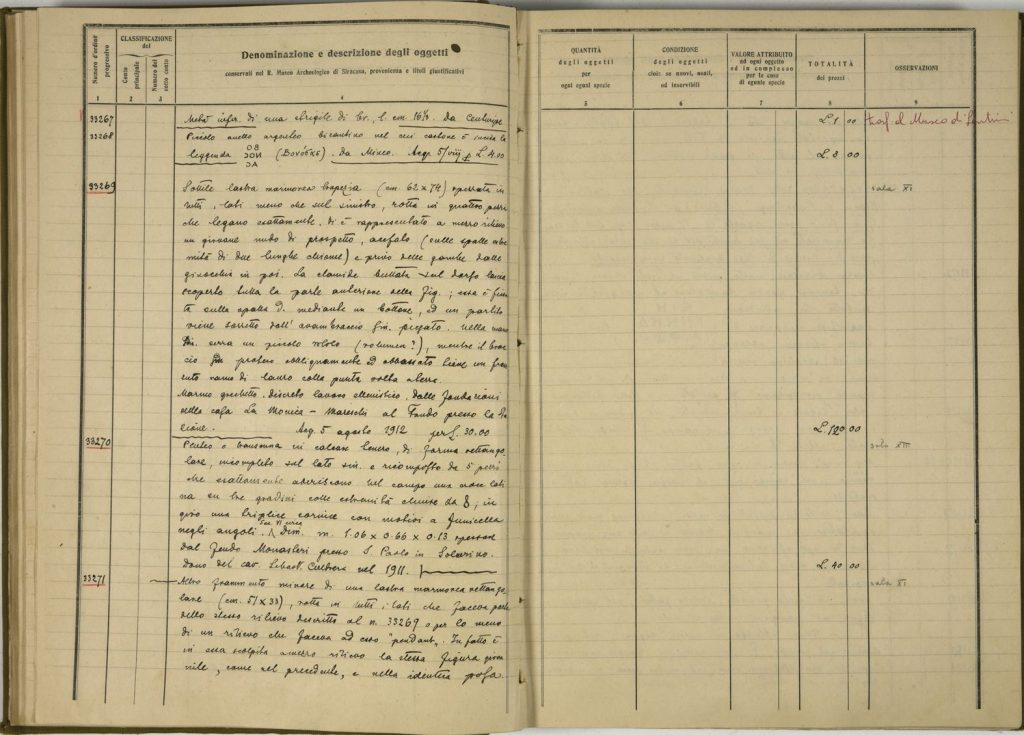 Numero d'ordine progressivo
CLASSIFICAZIONE del
Conto principale
Numero del sotto conto
Denominazione e descrizione degli oggetti
conservati nel R. Museo Archeologico di Siracusa, provenienza e titoli giustificativi
QUANTITÀ degli oggetti per ogni eguai specie
CONDIZIONE degli oggetti cioè: se nuovi, usati, od inservibili
VALORE ATTRIBUITO ad ogni oggetto od in complesso per le cose di eguale specie
TOTALITÀ dei prezzi
OSSERVAZIONI
1 2 3 4 5 6 7 8 9
33267 Metà infer. di una strigile di br., l. cm. 16½. da Centuripe L. 1 00 Trasf. al Museo di Lentini
33268 Piccolo anello argenteo bizantino nel cui castone è incisa la
leggenda ΒΟ ΝΟϹ ΑϹ da Mineo. Acqu. 5/viii p. L. 4.00 L. 8 00
33269 Sottile lastra marmorea (cm. 62 x 74) spezzata in sala XI
tutti i lati meno che sul sinistro, rotta in quattro pezzi
che legano esattamente. Vi è rappresentato a mezzo rilievo
un giovane nudo di prospetto, acefalo (sulle spalle estre
mità di due lunghe chiome) e privo delle gambe dalle
ginocchia in poi. La clamide buttata sul dorso lascia
scoperto tutta la parte anteriore della fig.; essa è fissa
ta sulla spalla d. mediante un bottone, ed un partito
viene sorretto dall'avambraccio sin. piegato. nella mano
sin. serra un piccolo rotolo (volumen?), mentre il brac
cio proteso obliquamente ed abbassato tiene un
ramo di lauro colla punta volta a terra.
Marmo grechetto. discreto lavoro ellenistico. dalle fondazioni
della casa La Monica - Mareschi al Fondo presso la Sta
zione. Acq. 5 agosto 1912 per L. 30.00 L. 120 00
33270 Pluteo o transenna in calcare tenero, di forma rettango sala XII
lare, incompleto sul lato sin. e ricomposto da 5 pezzi
che esattamente aderiscono. Nel campo una croce lati
na su tre gradini colle estremità chiuse da 8; in
giro una triplice cornice con motivi a funicella
negli angoli. Sec. VI circa Dim. m. 1.06 x 0.66 x 0.13
dal feudo Monasteri presso S. Paolo in Solarino.
Dono del cav. Sebast. Cultrera nel 1911. L. 40 00
33271 Altro frammento minore di una lastra marmorea rettango sala XI
lare (cm. 51 x 33), rotta in tutti i lati che faceva parte
dello stesso rilievo descritto al n. 33269 o per lo meno
di un rilievo che faceva ad esso "pendant„. In fatto è
in essa scolpita a mezzo rilievo la stessa figura giova
nile, come nel precedente, e nella identica posa.